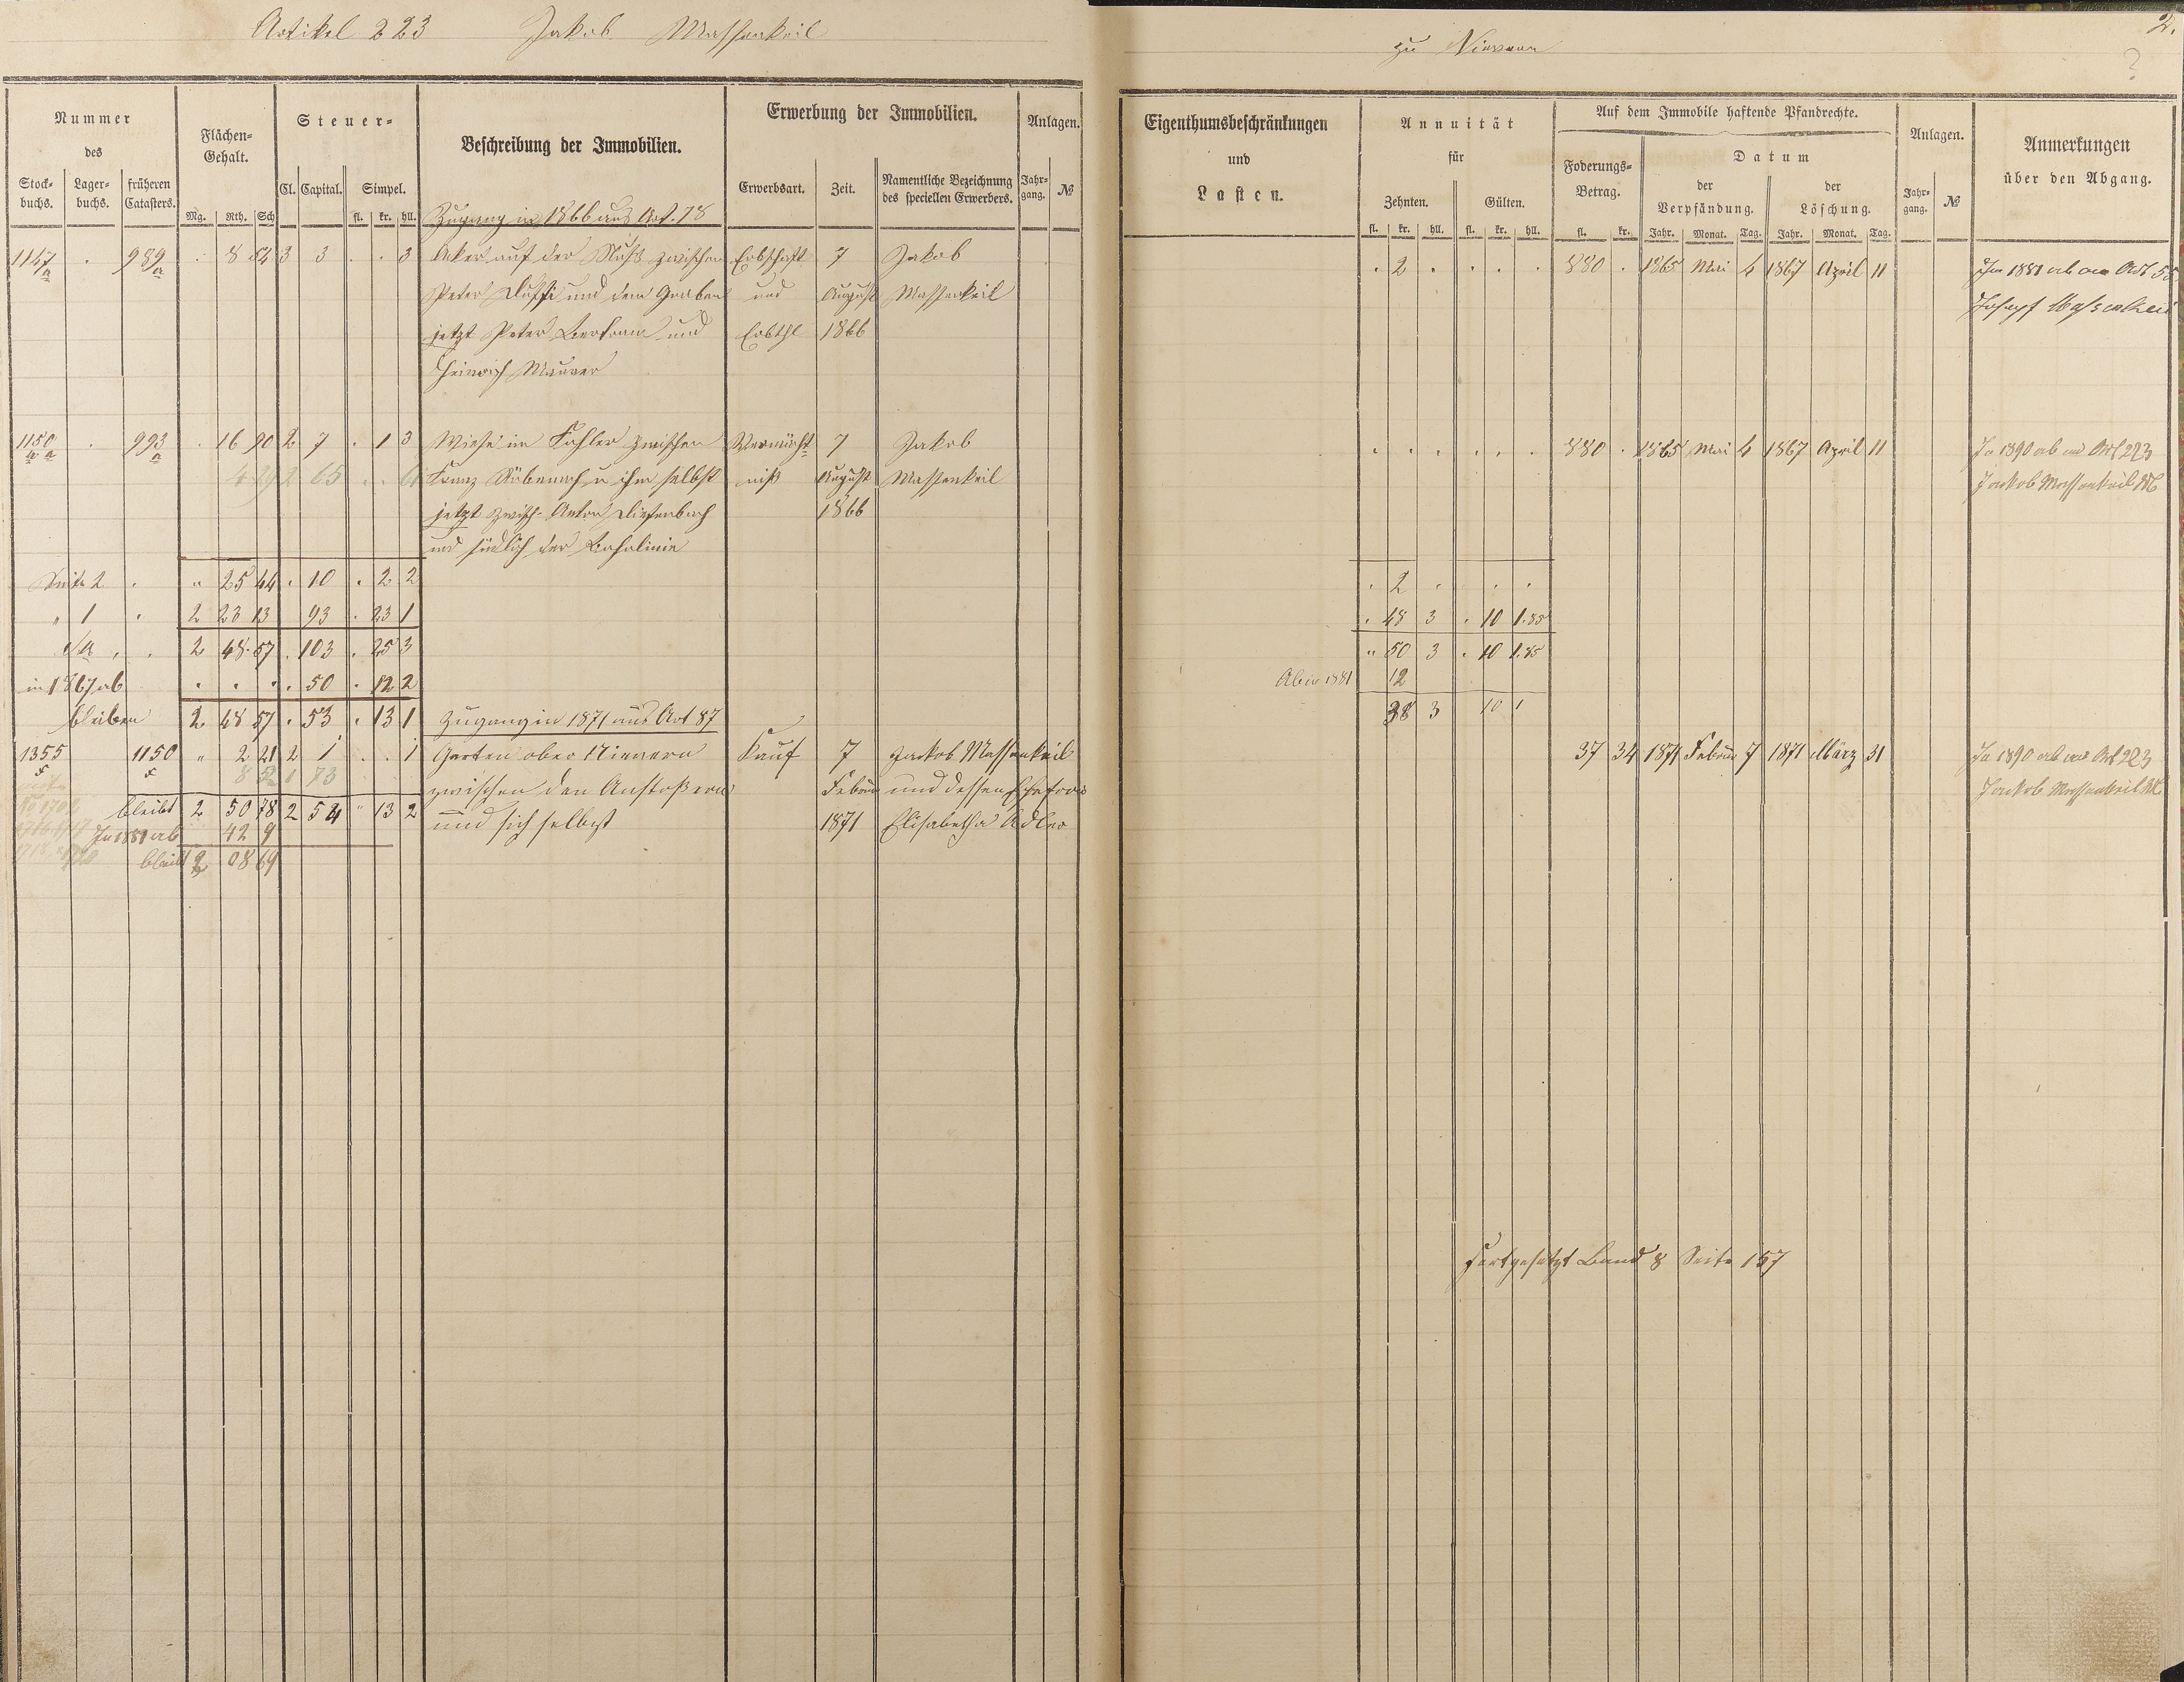 Artikel 223 Jakob Massenkeil
zu Nievern
2.
?
Nummer
des
Stock-
buchs.
Lager-
buchs.
früheren
Catasters.
Flächen-
Gehalt.
Mg. Rth. Sch
Steuer-
Cl. Capital. Simpel.
fl. kr. hll.
Beschreibung der Immobilien.
Erwerbung der Immobilien.
Erwerbsart. Zeit. Namentliche Bezeichnung
des speciellen Erwerbers.
Anlagen.
Jahr-
gang. №
Eigenthumsbeschränkungen
und
Lasten.
Annuität
für
Zehnten. Gülten.
fl. kr. hll. fl. kr. hll.
Auf dem Immobile haftende Pfandrechte.
Foderungs-
Betrag.
fl. kr.
Datum
der
Verpfändung.
der
Löschung.
Jahr. Monat. Tag. Jahr. Monat. Tag.
Anlagen.
Jahr-
gang. №
Anmerkungen
über den Abgang.
Zugang in 1866 aus Art. 78
1147 a . 989 a . 8 54 3 3 . . 3 Acker auf der zwischen Erbschaft 7 Jakob . 2 . . . . 880 . 1865 Mai 4 1867 April 11 Im 1881 ab an Art 55
Peter und dem Graben und August Massenkeil Joseph Massenkeil
jetzt Peter Bertram und Erbthl 1866
Heinrich Maurer
1150 a . 993 a . 16 90 2 7 . 1 3 Wiese im Fahler zwischen Vermächt- 7 Jakob . . . . . . 880 . 1865 Mai 4 1867 April 11 In 1890 ab an Art 223
4 29 2 65 . . Franz u ihm selbst niß August Massenkeil Jakob Massenkeil
jetzt zwisch. Anton Diefenbach 1866
und südlich der Bahnlinie
Seite 2 . " 25 44 . 10 . 2 2 . 2 . . .
" 1 . 2 23 13 93 . 23 1 . 48 3 . 10 1.85
Sa . . 2 48 57 . 103 . 25 3 " 50 3 . 10 1.85
in 1867 ab . . . . 50 . 12 2 Ab in 1881 12
bleiben 2 48 57 . 53 . 13 1 Zugang in 1871 aus Art 87 38 3 10 1
1355 F 1150 F " 2 21 2 1 . . 1 Garten ober Nievern Kauf 7 Jakob Massenkeil 37 34 1871 Februar 7 1871 März 31 In 1890 ab an Art 223
8 52 1 73 zwischen den Anstoßern Februar und dessen Ehefrau Jakob Massenkeil
bleibt 2 50 78 2 54 " 13 2 und sich selbst 1871 Elisabetha Adler
In 1881 ab 42 9
bleibt 2 08 69
Fortgesetzt Band 8 Seite 157